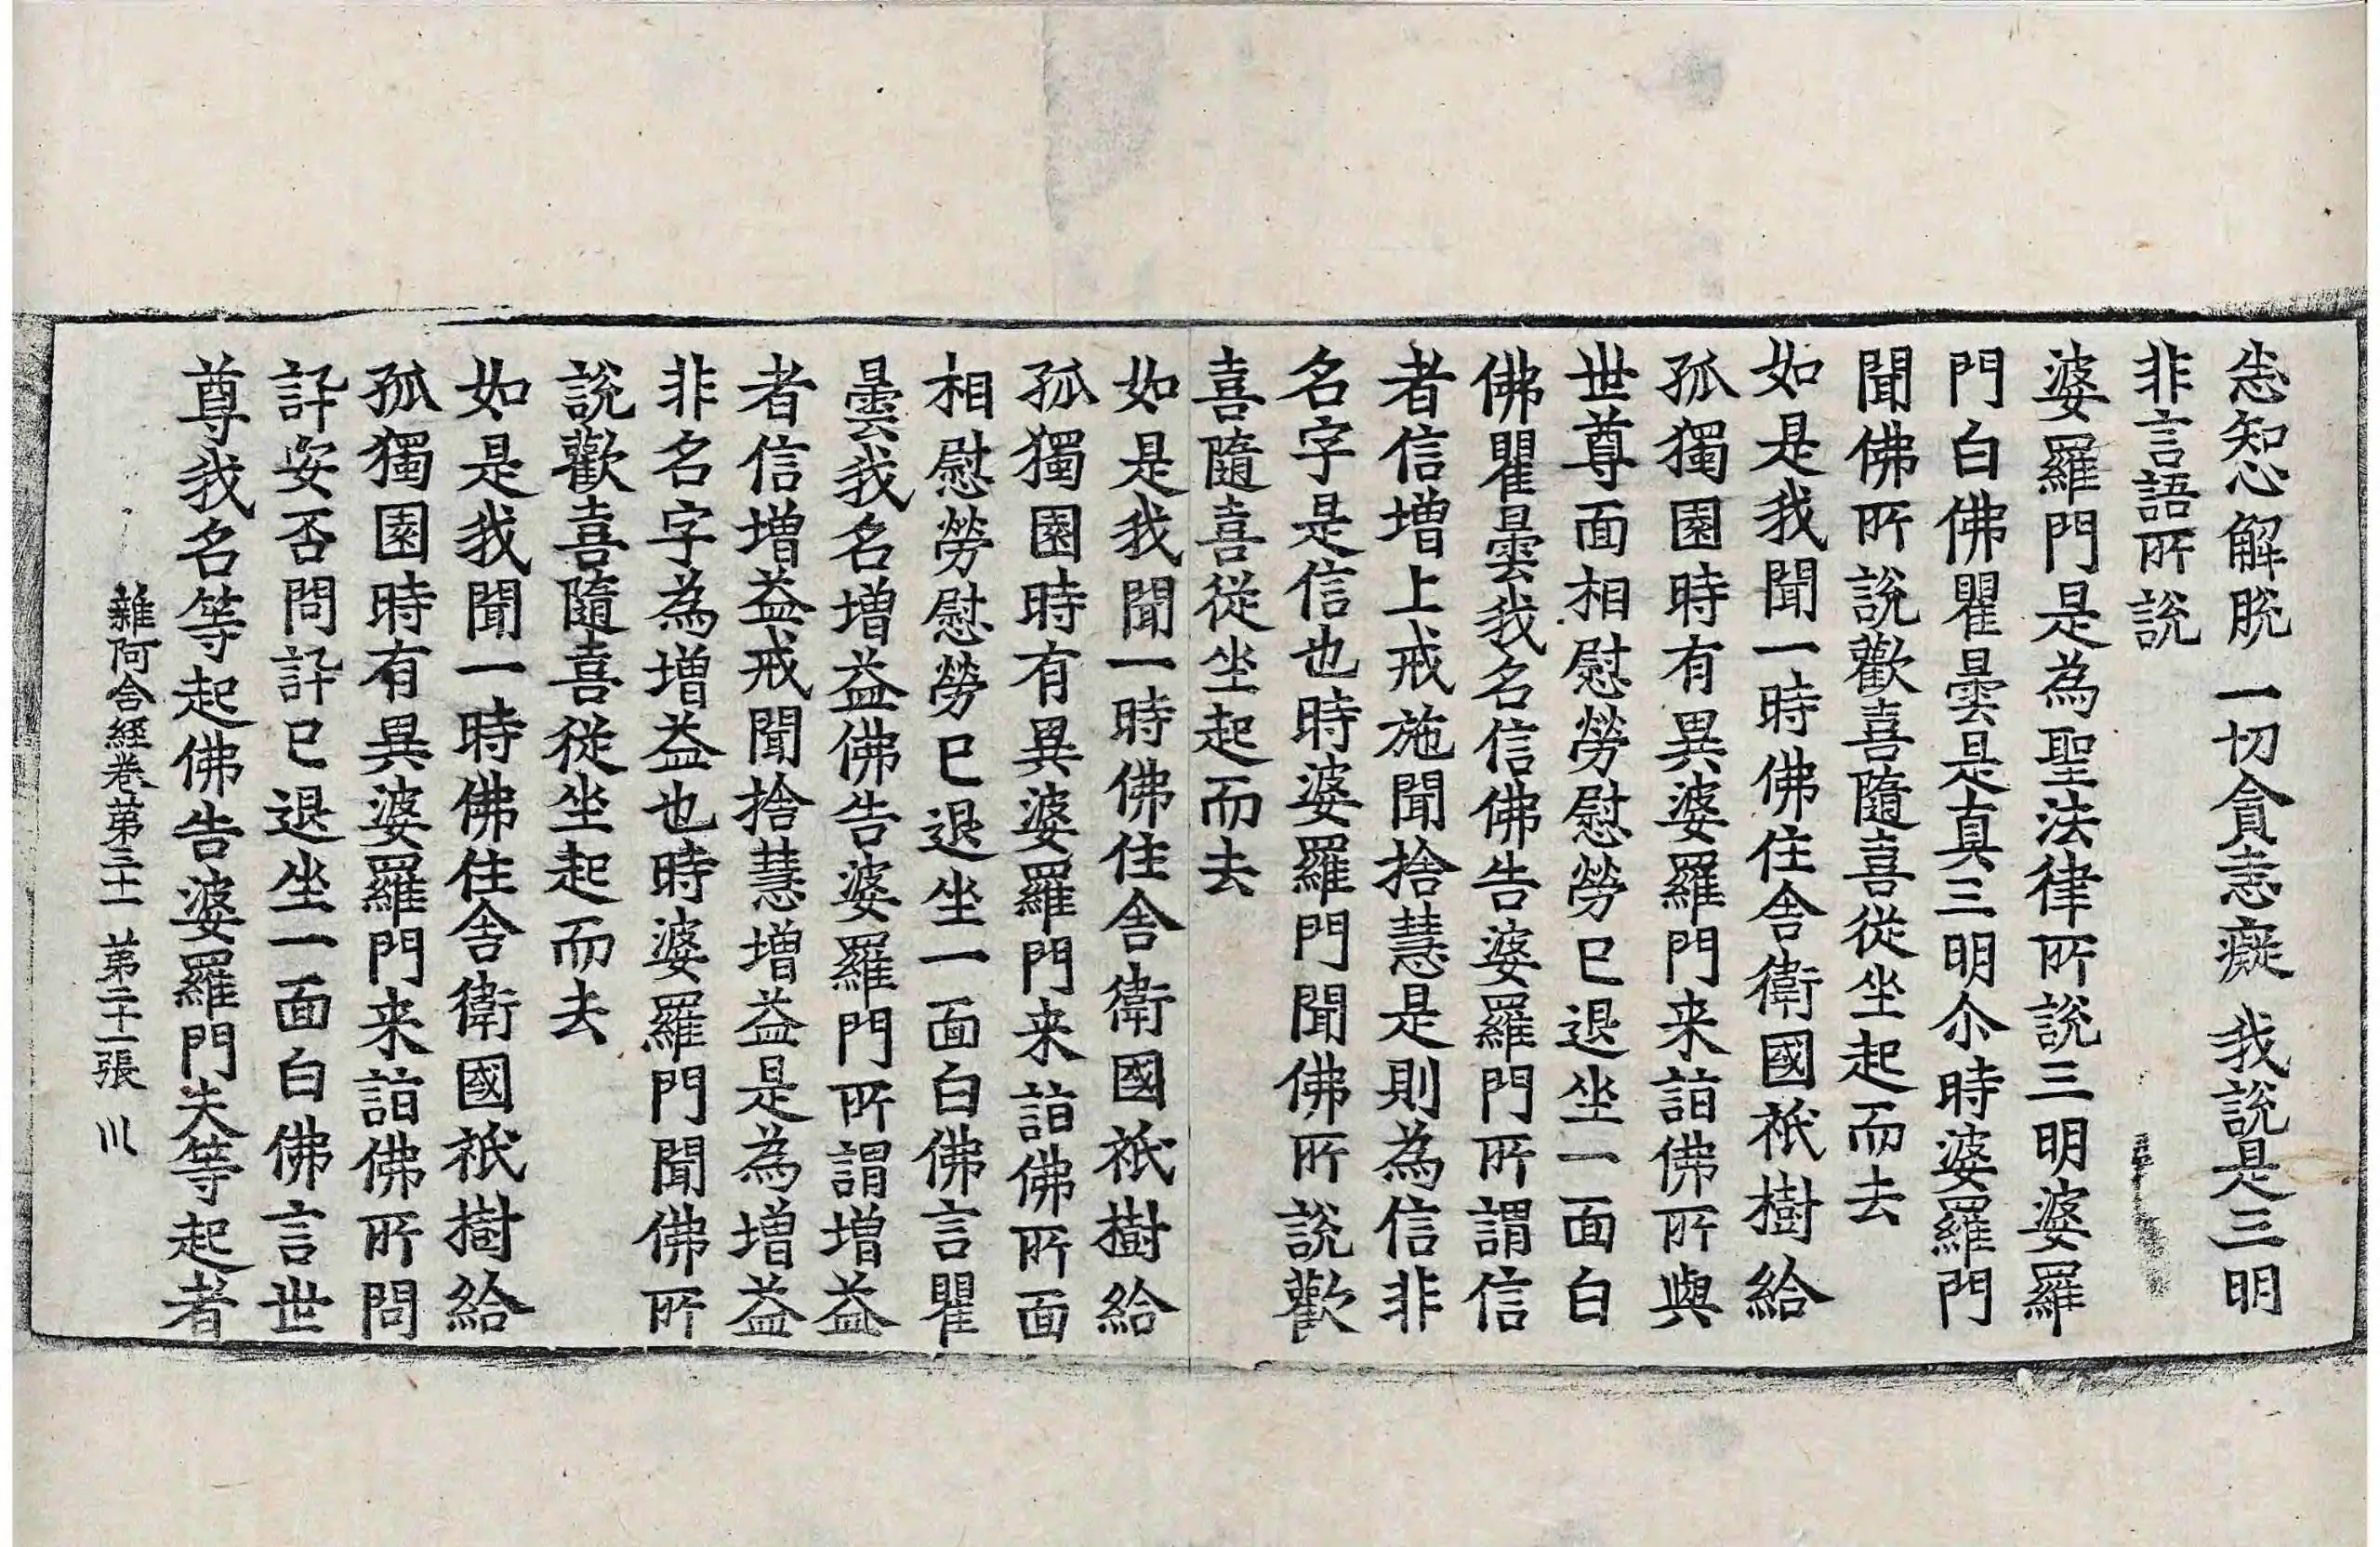 悉知心解脫一切貪恚癡我說是三明
非言語所說
婆羅門是為聖法律所說三明婆羅
門白佛瞿曇是真三明尒時婆羅門
聞佛所說歡喜隨喜從坐起而去
如是我聞一時佛住舍衛國祇樹給
孤獨園時有異婆羅門来詣佛所與
世尊面相慰勞慰勞已退坐一面白
佛瞿曇我名信佛告婆羅門所謂信
者信增上戒施聞捨慧是則為信非
名字是信也時婆羅門聞佛所說歡
喜隨喜從坐起而去
如是我聞一時佛住舍衛國祇樹給
孤獨園時有異婆羅門来詣佛所面
相慰勞慰勞已退坐一面白佛言瞿
曇我名增益佛告婆羅門所謂增益
者信增益戒聞捨慧增益是為增益
非名字為增益也時婆羅門聞佛所
說歡喜隨喜從坐起而去
如是我聞一時佛住舍衛國祇樹給
孤獨園時有異婆羅門来詣佛所問
訐安否問訐已退坐一面白佛言世
尊我名等起佛告婆羅門夫等起者
雜阿含經卷第三十一 第二十二張 川